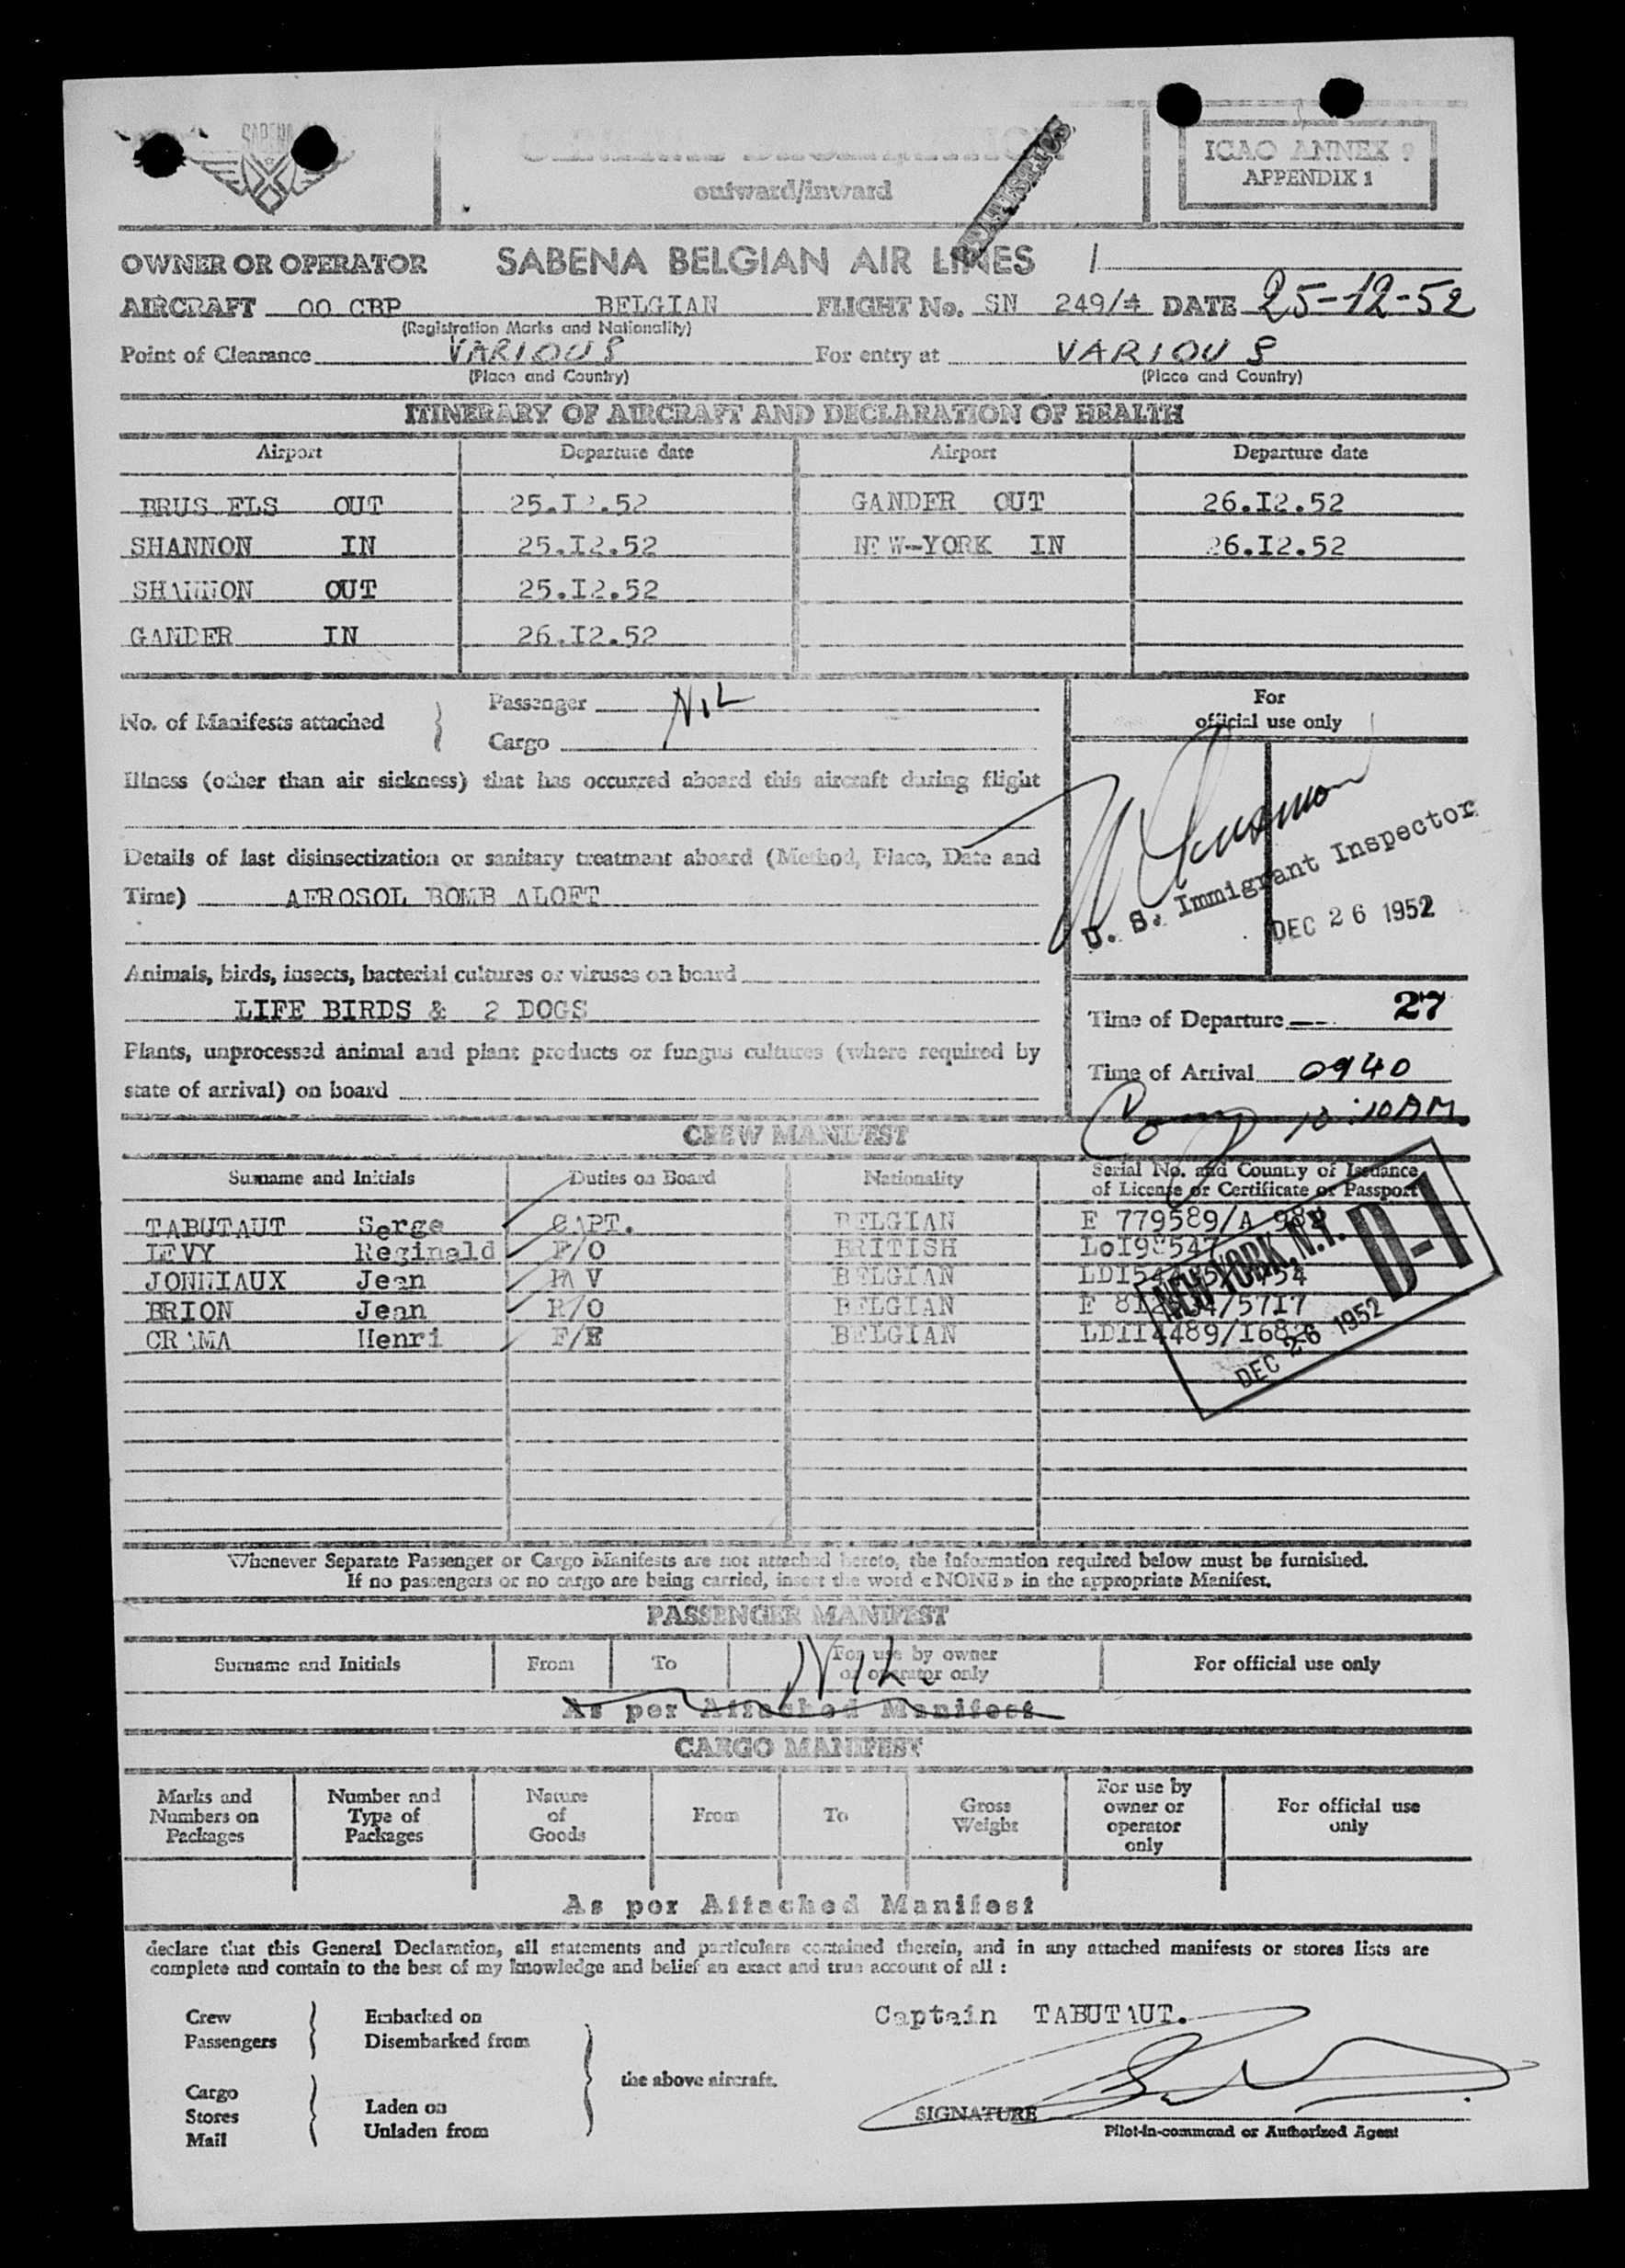 SABENA
outward/inward
ICAO ANNEX 9
APPENDIX 1
STATISTICS
OWNER OR OPERATOR SABENA BELGIAN AIR LINES
AIRCRAFT OO CBP BELGIAN FLIGHT No. SN 249/4 DATE 25-12-52
(Registration Marks and Nationality)
Point of Clearance VARIOUS For entry at VARIOUS
(Place and Country) (Place and Country)
ITINERARY OF AIRCRAFT AND DECLARATION OF HEALTH
Airport Departure date Airport Departure date
BRUS ELS OUT 25.I2.52 GANDER OUT 26.I2.52
SHANNON IN 25.I2.52 NEW-YORK IN 26.I2.52
SHANNON OUT 25.I2.52
GANDER IN 26.I2.52
No. of Manifests attached } Passenger NIL
Cargo
For
official use only
Illness (other than air sickness) that has occurred aboard this aircraft during flight
Details of last disinsectization or sanitary treatment aboard (Method, Place, Date and
Time) AEROSOL BOMB ALOFT
U. S. Immigrant Inspector
DEC 26 1952
Animals, birds, insects, bacterial cultures or viruses on board
LIFE BIRDS & 2 DOGS
Time of Departure 27
Plants, unprocessed animal and plant products or fungus cultures (where required by
state of arrival) on board
Time of Arrival 0940
10:10AM
CREW MANIFEST
Surname and Initials Duties on Board Nationality Serial No. and Country of Issuance
of License or Certificate or Passport
TABUTAUT Serge CAPT. BELGIAN E 779589/A
LEVY Reginald F/O BRITISH
JONNIAUX Jean NAV BELGIAN
BRION Jean R/O BELGIAN
CRAMA Henri F/E BELGIAN
NEW YORK, N.Y. D-1
DEC 26 1952
Whenever Separate Passenger or Cargo Manifests are not attached hereto, the information required below must be furnished.
If no passengers or no cargo are being carried, insert the word « NONE » in the appropriate Manifest.
PASSENGER MANIFEST
Surname and Initials From To For use by owner
or operator only For official use only
NIL
As per Attached Manifest
CARGO MANIFEST
Marks and
Numbers on
Packages
Number and
Type of
Packages
Nature
of
Goods
From
To
Gross
Weight
For use by
owner or
operator
only
For official use
only
As per Attached Manifest
declare that this General Declaration, all statements and particulars contained therein, and in any attached manifests or stores lists are
complete and contain to the best of my knowledge and belief an exact and true account of all :
Crew } Embarked on
Passengers Disembarked from
Captain TABUTAUT.
the above aircraft.
Cargo
Stores } Laden on
Mail Unladen from
SIGNATURE
Pilot-in-command or Authorized Agent